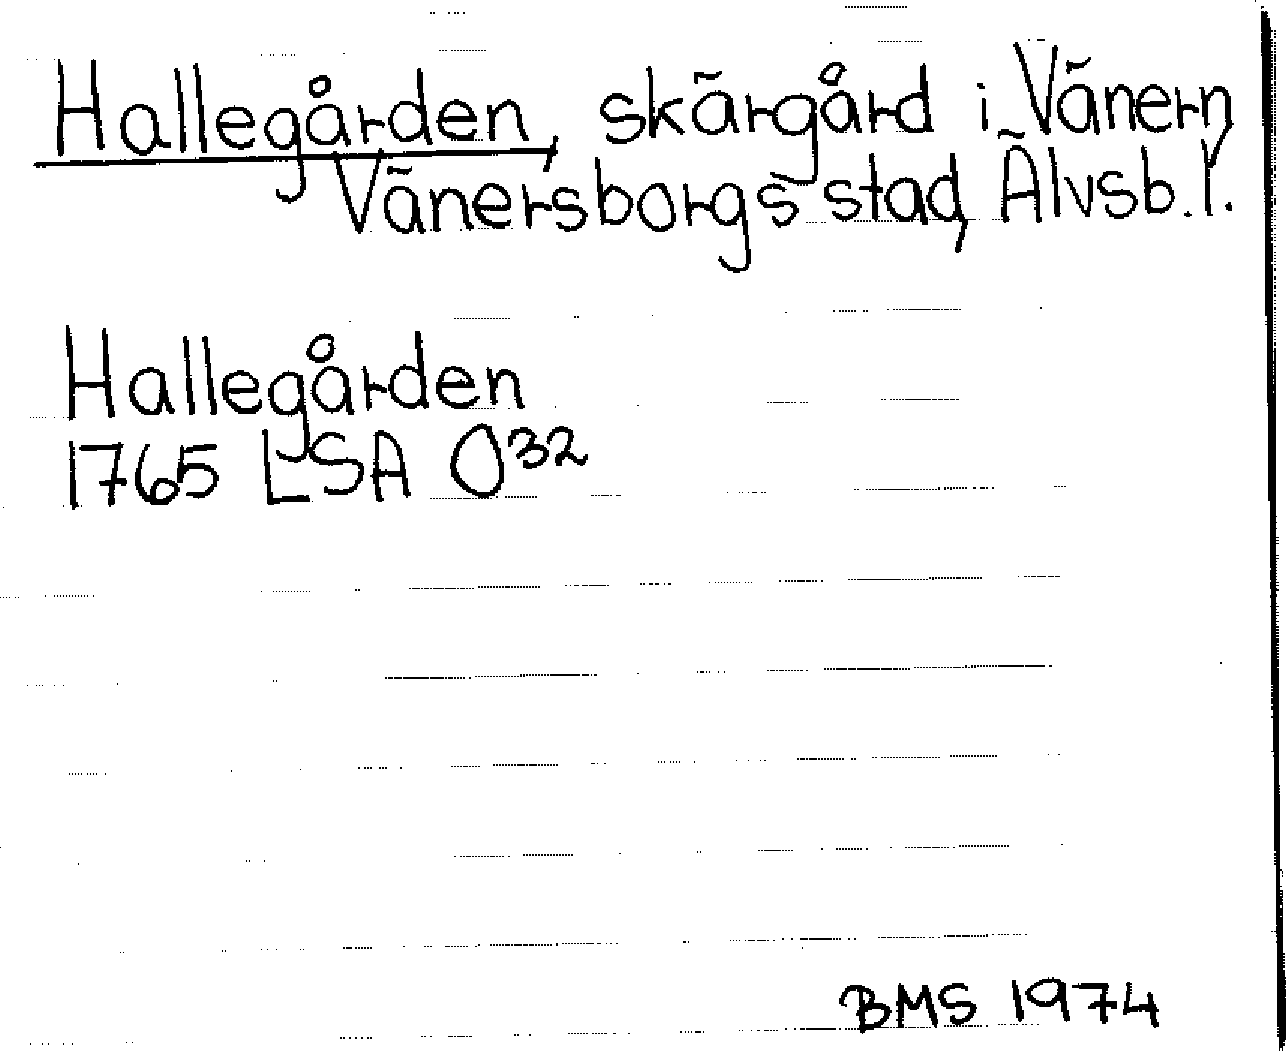 Hallegården, skärgård i Vänern,
Vänersborgs stad, Älvsb. l.
Hallegården
1765 LSA O32
BMS 1974